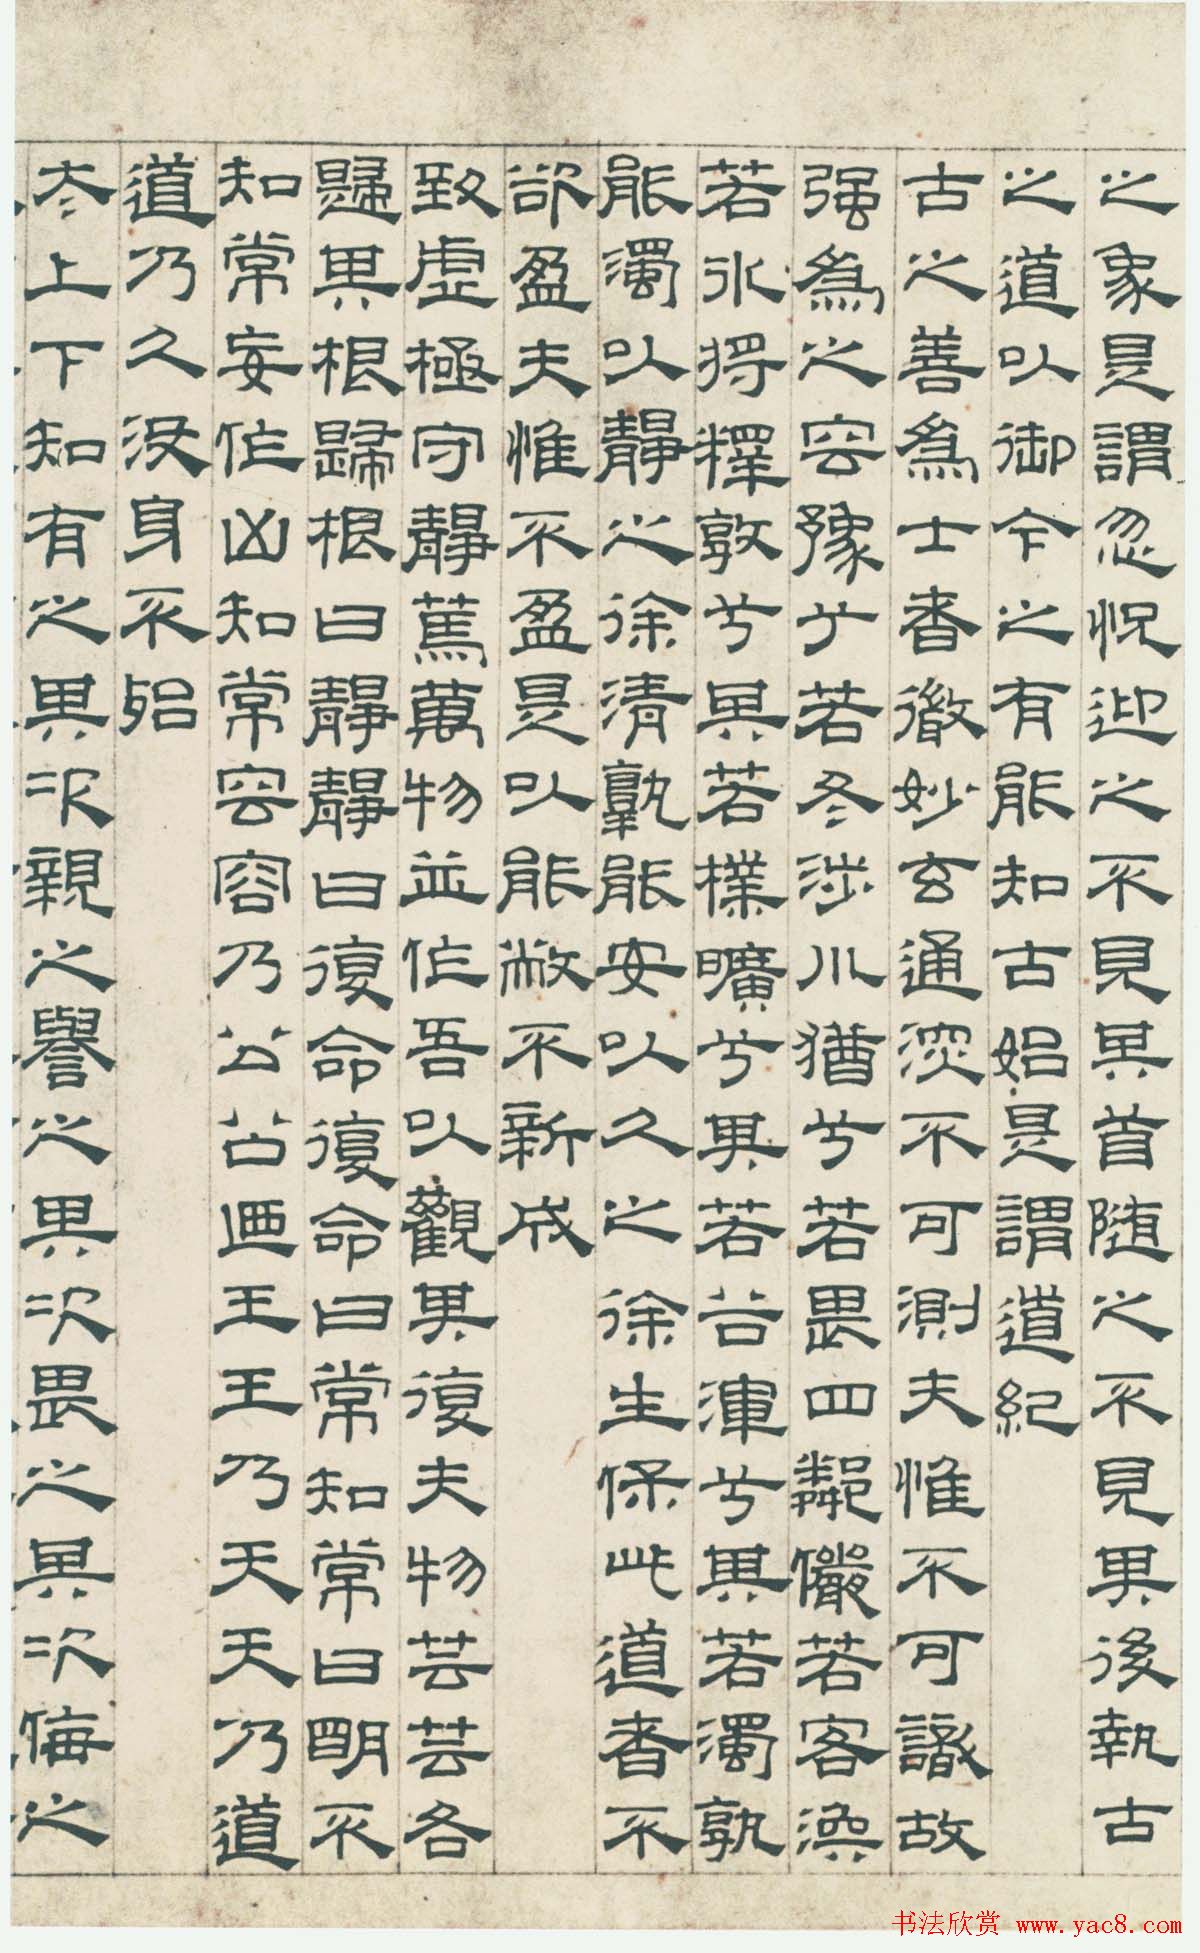 之象是謂忽怳迎之不見其首随之不見其後執古
之道以御今之有能知古始是謂道紀
古之善為士者微妙玄通深不可測夫惟不可識故
强為之容豫兮若冬涉川猶兮若畏四鄰儼若客渙
若冰將釋敦兮其若樸曠兮其若谷渾兮其若濁孰
能濁以靜之徐清孰能安以久之徐生保此道者不
欲盈夫惟不盈是以能敝不新成
致虛極守靜篤萬物並作吾以觀其復夫物芸芸各
歸其根歸根曰靜靜曰復命復命曰常知常曰明不
知常妄作凶知常容容乃公公迺王王乃天天乃道
道乃久没身不殆
太上下知有之其次親之譽之其次畏之其次侮之
书法欣赏 www.yac8.com